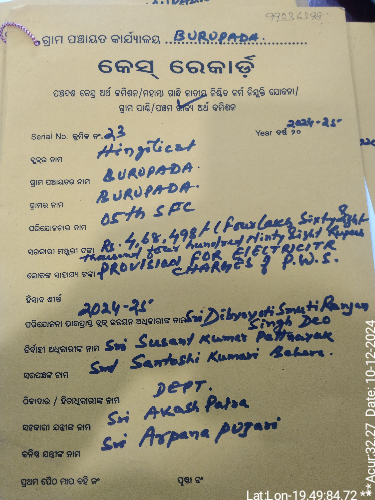 ଗ୍ରାମ ପଞ୍ଚାୟତ କାର୍ଯ୍ୟାଳୟ BURUPADA.
କେସ୍ ରେକର୍ଡ଼
ପଞ୍ଚଦଶ କେନ୍ଦ୍ର ଅର୍ଥ କମିଶନ/ମହାତ୍ମା ଗାନ୍ଧି ଜାତୀୟ ନିଶ୍ଚିତ କର୍ମ ନିଯୁକ୍ତି ଯୋଜନା/
ଗ୍ରାମ ପାଣ୍ଠି/ପଞ୍ଚମ ରାଜ୍ୟ ଅର୍ଥ କମିଶନ
Serial No. କ୍ରମିକ ନଂ. 23 Year ବର୍ଷ ୨୦ 2024-25
ବ୍ଲକର ନାମ Hinjilicut
ଗ୍ରାମ ପଞ୍ଚାୟତର ନାମ BURUPADA.
ଗ୍ରାମର ନାମ BURUPADA.
ପରିଯୋଜନାର ନାମ 05th SFC
ସରକାରୀ ମଞ୍ଜୁରୀ ଟଙ୍କା Rs. 4,68,498/- (Four Lakh Sixty Eight
thousand four hundred Ninty Eight Rupees
ଲୋକଙ୍କ ସାହାଯ୍ୟ ଟଙ୍କା PROVISION FOR ElECTRICITR
CHARGES of P.W.S.
ହିସାବ ଶୀର୍ଷ 2024-25
ପରିଯୋଜନା ପାଇଁ ବ୍ଲକ୍ ଉନ୍ନୟନ ଅଧିକାରୀଙ୍କ ନାମ Sri Dibyajyoti Smruti Ranjan
Singh Deo
ନିର୍ବାହୀ ଅଧିକାରୀଙ୍କ ନାମ Sri Susant Kumar Pattnayak
ସରପଞ୍ଚଙ୍କ ନାମ Smt Santoshi Kumari Behera.
ଠିକାଦାର / ହିତାଧିକାରୀଙ୍କ ନାମ DEPT.
ସହକାରୀ ଯନ୍ତ୍ରୀଙ୍କ ନାମ Sri Akash Patra
କନିଷ୍ଠ ଯନ୍ତ୍ରୀଙ୍କ ନାମ Sri Arpana pujari
ପ୍ରଥମ ପୈଠ ମାପ ବହି ନଂ ପୃଷ୍ଠା ନଂ
Lat:Lon-19.49:84.72 ***Acur:32.27 Date: 10-12-2024